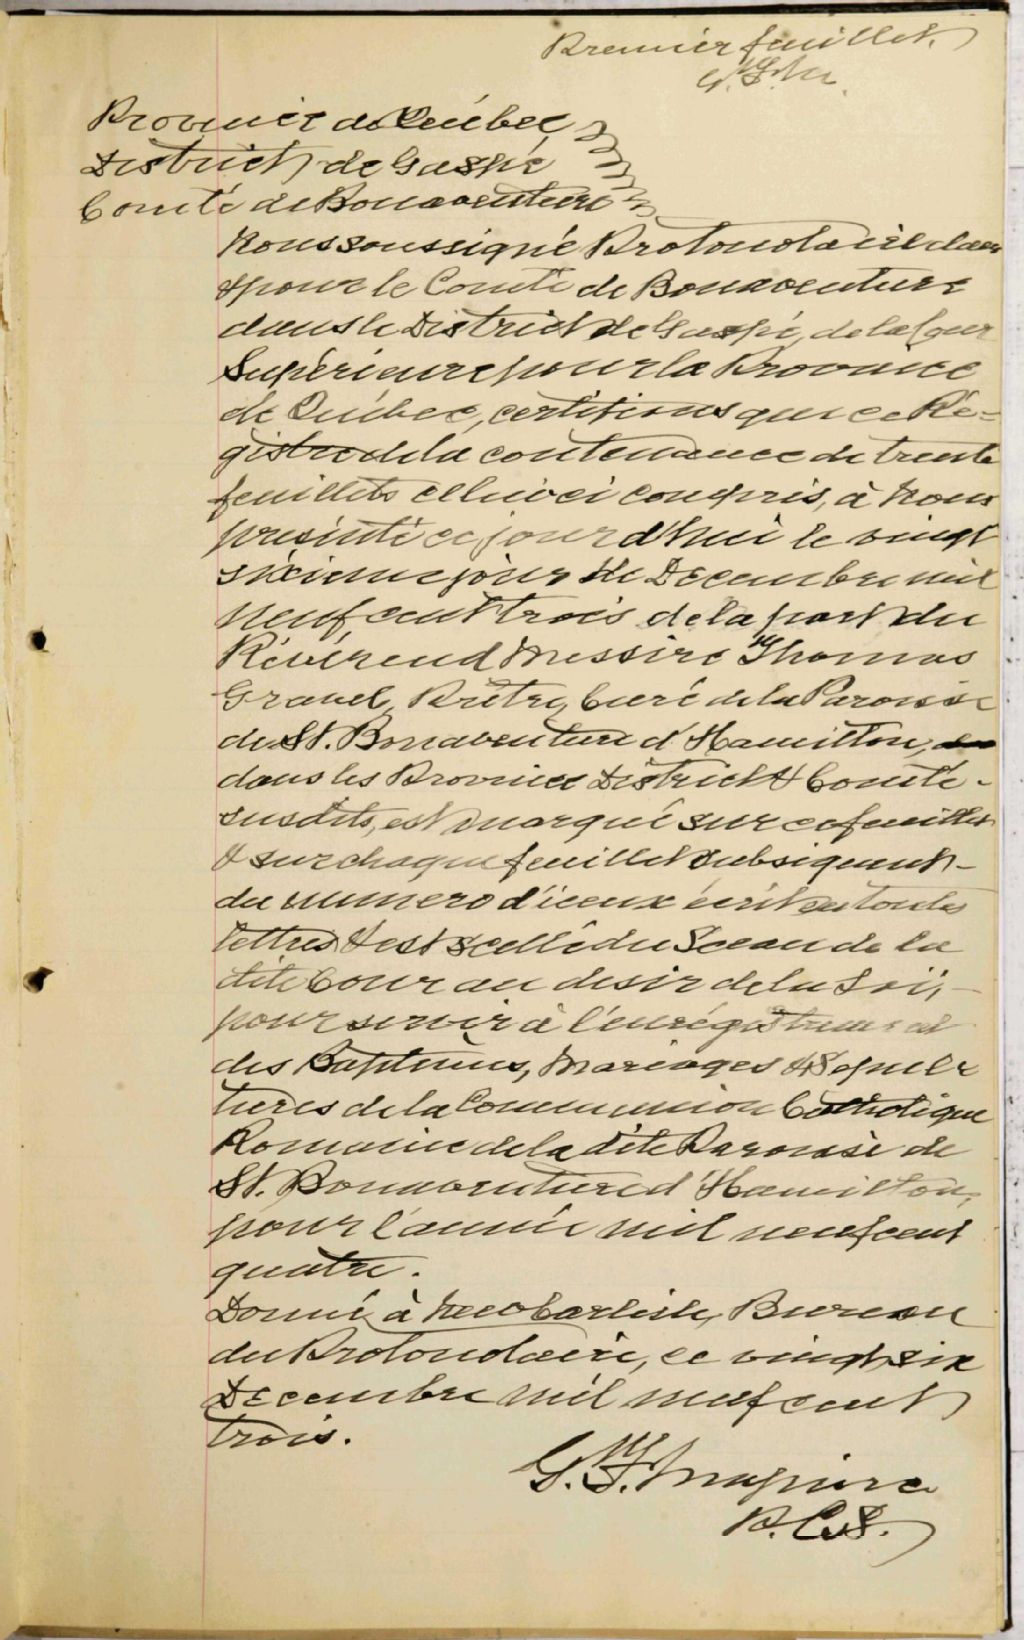 Premier feuillet.
G.F.M.
Province de Québec,
District de Gaspé
Comté de Bonaventure
Nous soussigné Protonotaire dans
& pour le Comté de Bonaventure
dans le District de Gaspé, de la Cour
Supérieure pour la Province
de Québec, certifions que ce Ré-
gistre de la contenance de trente
feuillets celluici compris, à nous
présenté ce jourd'hui le vingt
sixieme jour de Décembre mil
neuf cent trois de la part du
Révérend Messire Thomas
Gravel, Prêtre, Curé de la Paroisse
de St. Bonaventure d'Hamilton,
dans les Province District & Comté -
susdits, est marqué sur ce feuillet
& sur chaque feuillet subséquent -
du numero d'iceux écrit en toutes
lettres & est scellé du Sceau de la
dite Cour au désir de la Loi, -
pour servir à l'enrégistrement
des Baptêmes, Mariages & Sépul
tures de la Communion Catholique
Romaine de la dite Paroisse de
St. Bonaventure d'Hamilton,
pour l'année mil neuf cent
quatre.
Donné à New Carlisle, Bureau
du Protonotaire, ce vingt six
Décembre mil neuf cent
trois.
G. F. Maguire
P.C.S.